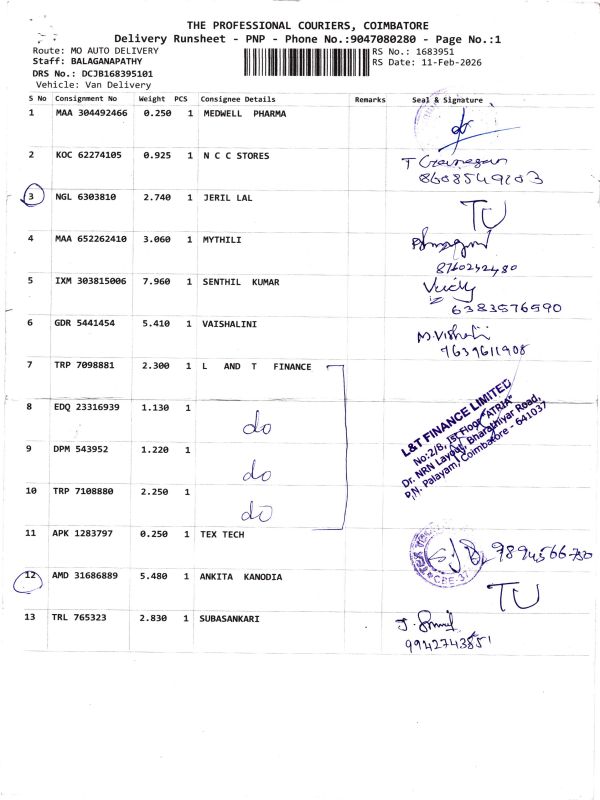 THE PROFESSIONAL COURIERS, COIMBATORE
Delivery Runsheet - PNP - Phone No.:9047080280 - Page No.:1
Route: MO AUTO DELIVERY RS No.: 1683951
Staff: BALAGANAPATHY RS Date: 11-Feb-2026
DRS No.: DCJB168395101
Vehicle: Van Delivery
S No Consignment No Weight PCS Consignee Details Remarks Seal & Signature
1 MAA 304492466 0.250 1 MEDWELL PHARMA
2 KOC 62274105 0.925 1 N C C STORES
8608549203
3 NGL 6303810 2.740 1 JERIL LAL TU
4 MAA 652262410 3.060 1 MYTHILI
8760242480
5 IXM 303815006 7.960 1 SENTHIL KUMAR
6383576590
6 GDR 5441454 5.410 1 VAISHALINI M.Vishali
9639611908
7 TRP 7098881 2.300 1 L AND T FINANCE
8 EDQ 23316939 1.130 1 do
9 DPM 543952 1.220 1 do
10 TRP 7108880 2.250 1 do
L&T FINANCE LIMITED
No:2/8, Ist Floor "ATRIA"
Dr. NRN Layout, Bharathiyar Road,
P.N. Palayam, Coimbatore - 641037
11 APK 1283797 0.250 1 TEX TECH
CBE-37
12 AMD 31686889 5.480 1 ANKITA KANODIA TU
13 TRL 765323 2.830 1 SUBASANKARI
9942743851